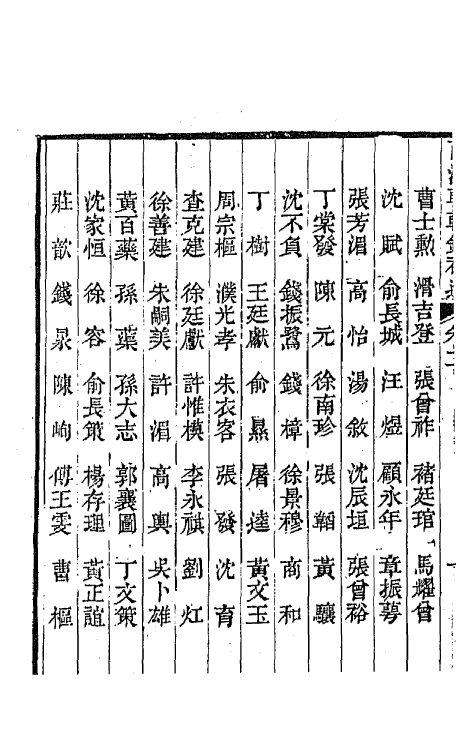 曹士勲　滑吉登　張曾祚　褚廷琯　馬耀曾
沈　賦　俞長城　汪　煜　顧永年　章振萼
張芳湄　高　怡　湯　敘　沈辰垣　張曾裕
丁棠發　陳　元　徐南珍　張　韜　黃　驤
沈不負　錢振鷺　錢　樟　徐景穆　商　和
丁　樹　王廷獻　俞　㬎　屠　逵　黃文玉
周宗樞　濮光孝　朱衣客　張　發　沈　育
查克建　徐廷獻　許惟模　李永祺　劉　灴
徐善建　朱嗣美　許　湄　高　輿　吳卜雄
黃百藥　孫　蕖　孫大志　郭襄圖　丁文策
沈家恒　徐　容　俞長策　楊存理　黃正誼
莊　歆　錢　㫤　陳　峋　傅王雯　曹　樞